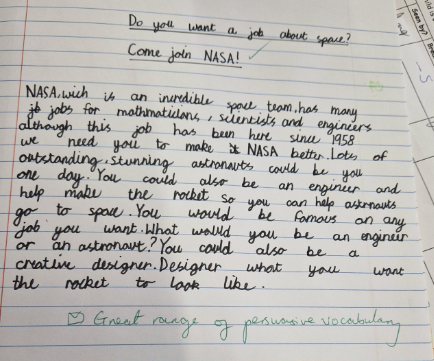 Do you want a job about space?
Come join NASA!
NASA, wich is an incredible space team, has many
jb jobs for mathmaticians, scientists and engineers
although this job has been here since 1958
we need you to make NASA better. Lots of
outstanding, stunning astronauts could be you
one day. You could also be an engineer and
help make the rocket so you can help astronauts
go to space. You would be famous on any
job you want. What would you be an engineer
or an astronaut? You could also be a
creative designer. Designer what you want
the rocket to look like.
Great range of persuasive vocabulary
Seen by?